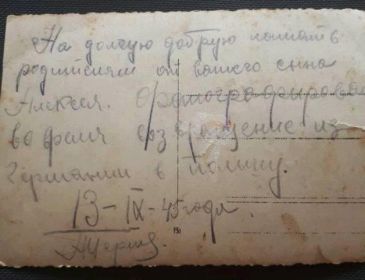 На долгую добрую память
родителям от вашего сына
Алексея. Фотографировался
во время возвращение из
Германии в Польшу.
13-IX-45 года.